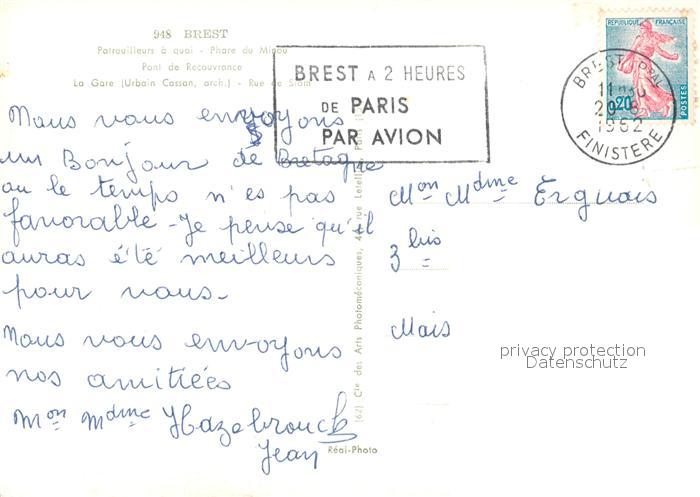 948 BREST
Patrouilleurs à quai - Phare du Minou
Pont de Recouvrance
La Gare (Urbain Cassan, arch.) - Rue de Siam
BREST A 2 HEURES
DE PARIS
PAR AVION
REPUBLIQUE FRANÇAISE
0,20
POSTES
BREST
1962
FINISTERE
Nous vous envoyons
un Bonjour de Bretagne
ou le temps n'es pas
favorable - Je pense qu'il
auras été meilleurs
pour vous -
Nous vous envoyons
nos amitiées
Mon Mdme Hazebrouck
Jean
Mon Mdme Erguais
3 bis
Mais
privacy protection
Datenschutz
(62) Cie des Arts Photomécaniques, 44, rue Letellier, Paris
Réal-Photo